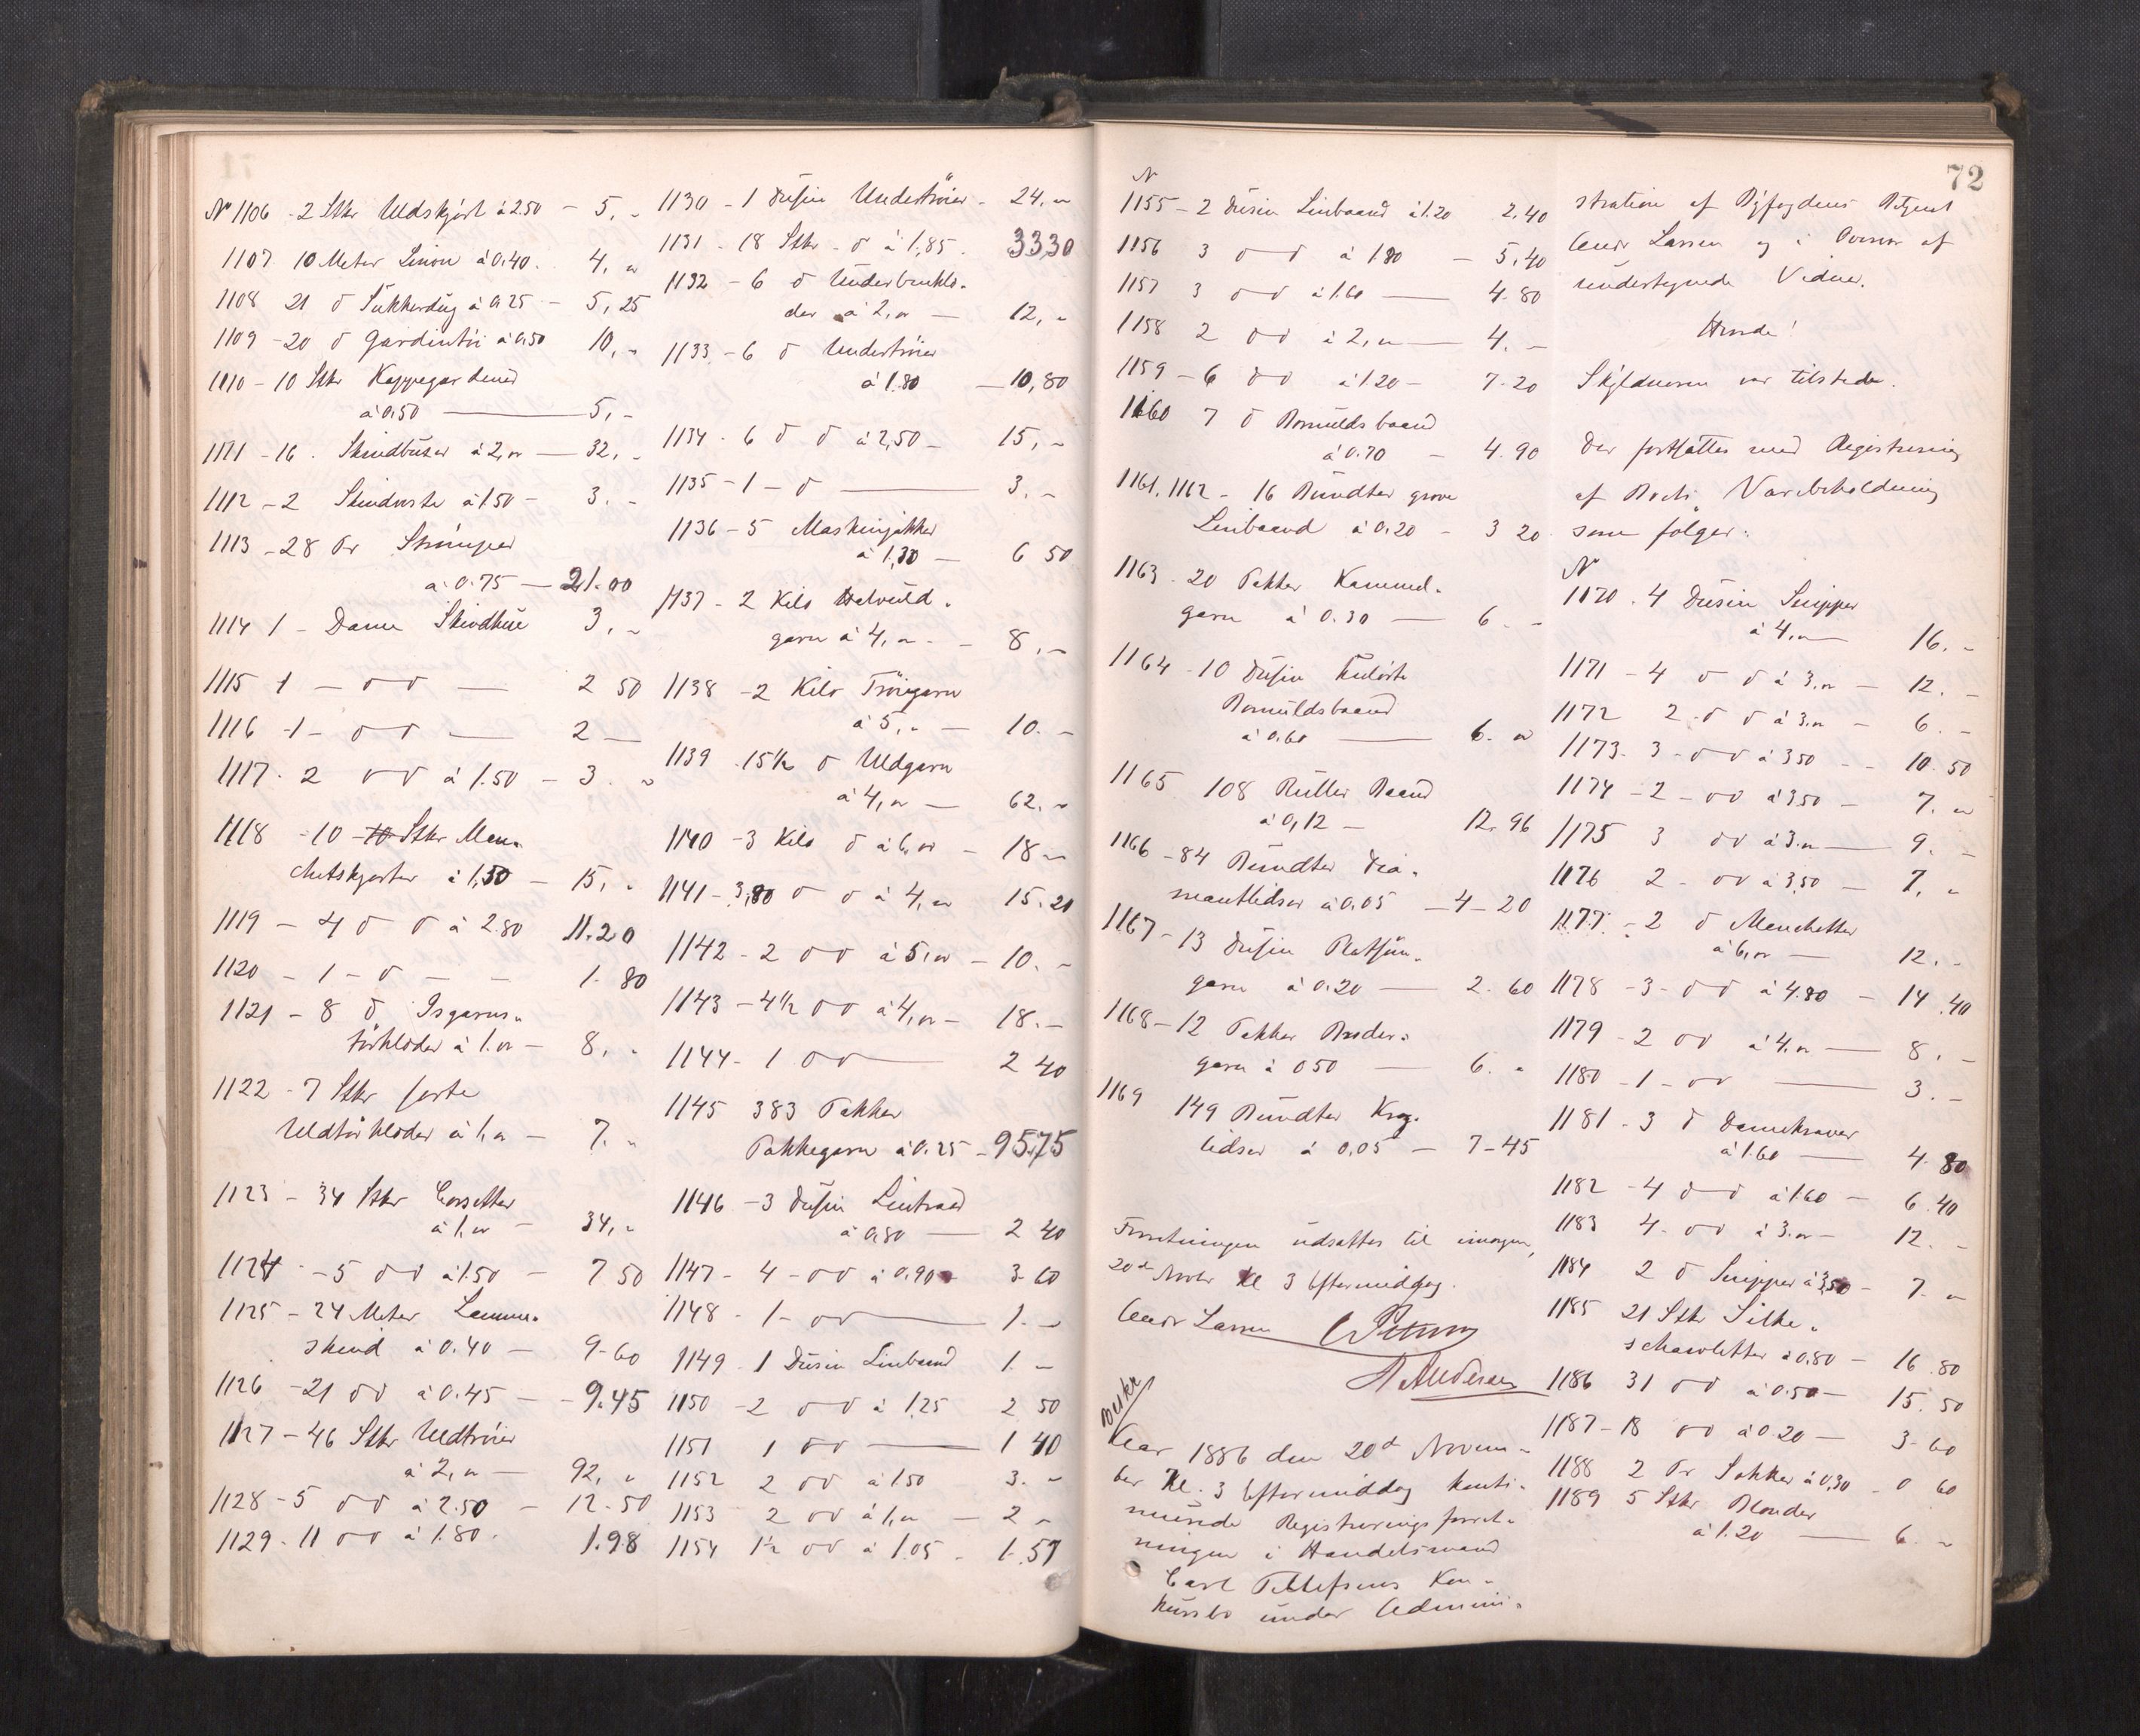 N 1106 - 2 Stkr Uldskjört à 2.50 - 5, -
1107 10 Meter Linon à 0.40. 4, "
1108 21 d Sukkerdug à 0.25 - 5,25
1109 - 20 d Gardintöi à 0.50 10, -
1110 - 10 Stkr Kappegardiner
à 0.50 — 5, -
1111 - 16. Skindhuer à 2, " — 32, -
1112 - 2 à 1.50 - 3. -
1113 - 28 Pr Strömper
à 0.75 — 21.00
1114 1 - Dame Skindhue 3, -
1115 1 - d d — 2 50
1116 - 1 - d d — 2 —
1117. 2 d d à 1.50 - 3. "
1118 - 10 - Stkr Man-
chetskjorter à 1,50 - 15, "
1119 - 4 d d à 2.80 11.20
1120 - 1 - d - - 1. 80
1121 - 8 d Isgarns-
törklæder à 1. " - 8, "
1122 - 7 Stkr sorte
Uldtörklæder à 1, " - 7. "
1123 - 34 Stkr Corsetter
à 1, " - 34, "
1124 - 5 d d à 1.50 - 7 50
1125 - 24 Meter Lamme-
skind à 0.40 - 9-60
1126 - 21 d d à 0.45 - - 9.45
1127 - 46 Stkr Uldtröier
à 2, " — 92, "
1128 - 5 d d à 2.50 - 12-50
1129. 11 d d à 1.80. 1.98
1130 - 1 Dusin Undertröier - 24, "
1131 - 18 Stkr - d à 1,85. 33.30
1132 - 6 d Underbenklæ-
der à 2, " — 12, "
1133 - 6 d Undertröier
à 1.80 — 10,80
1134. 6 d d à 2,50 - 15, -
1135 - 1 - d — 3. -
1136 - 5 Maskinjakker
à 1,30 — 6 50
1137 - 2 Kilo Halvuld-
garn à 4, " - - 8, -
1138 - 2 Kilo Tröiegarn
à 5, " — 10. -
1139 . 15½ d Uldgarn
à 4, " — 62. "
1140 - 3 Kilo d à 6, " - 18 "
1141 - 3,80 d d à 4, " 15.20
1142 - 2 d d à 5, " - 10. -
1143 - 4½ d d à 4, " - 18. -
1144 - 1 d d — 2 40
1145 383 Pakker
Pakkegarn à 0.25 - 95.75
1146 - 3 Dusin Linbaand
à 0,80 — 2 40
1147 - 4 - d d à 0.90 - 3-60
1148 - 1 - d d — 1. -
1149 - 1 Dusin Linbaand 1. -
1150 - 2 d d à 1.25 2 50
1151 1 d d — 1 40
1152 2 d d à 1.50 3. "
1153 2 d d à 1, " - 2 "
1154 1½ d d à 1.05 - 1.57
72
N
1155 - 2 Dusin Linbaand à 1.20 2.40
1156 3 d d à 1.80 - 5.40
1157 3 d d à 1.60 — 4.80
1158 2 d d à 2, " — 4. -
1159 - 6 d d à 1.20 - 7.20
1160 7 d Bomuldsbaand
à 0.70 - 4.90
1161, 1162 - 16 Bundter grove
Linbaand à 0.20 - 3 20
1163. 20 Pakker Kammel-
garn à 0.30 — 6. -
1164 - 10 Dusin kulörte
Bomuldsbaand
à 0.60 — 6. "
1165 108 Ruller Baand
à 0,12 - 12.96
1166 - 84 Bundter Dia-
mantlidser à 0.05 - 4 - 20
1167 - 13 Dusin
garn à 0.20 — 2.60
1168 - 12 Pakker Broder-
garn à 0 50 — 6. "
1169 149 Bundter
lidser à 0.05 - 7-45
Forretningen udsattes til imorgen,
20de Novbr Kl 3 Eftermiddag.
Andr Larsen
Andersen
Aar 1886 den 20de Novem-
ber Kl. 3 Eftermiddag konti-
nuerede Registreringsforret-
ningen i Handelsmand
Carl Tellefsens Kon-
kursbo under Admini-
stration af Byfogdens Betjent
Andr Larsen og i Overvær af
undertegnede Vidner.
Hvorda!
Skyldneren var tilstede.
Der fortsattes med Registrering
af Boets Varebeholdning
som følger:
N
1170. 4 Dusin Snipper
à 4, " 16. -
1171 - 4 d d à 3. " - 12. -
1172 2 d d à 3. " - 6. -
1173. 3 - d d à 3 50 - - 10.50
1174 - 2 - d d à 3 50 - 7. "
1175 3 d d à 3. " — 9. -
1176 2 - d d à 3,50 - 7. "
1177 - 2 d Manchetter
à 6, " — 12. -
1178 - 3 - d d à 4.80 - 14.40
1179 - 2 d d à 4. " — 8. -
1180 - 1 - d d — 3. -
1181 - 3 d Damekraver
à 1.60 — 4.80
1182 - 4 d d à 1.60 - 6.40
1183 4 - d d à 3. " - 12. -
1184 2 d Snipper à 3,50 - 7. "
1185 21 Stkr Silke-
schawletter à 0,80 - 16.80
1186 31 d d à 0.50 - 15.50
1187 - 18 d d à 0.20 - 3-60
1188 2 Pr Sokker à 0,30 - 0 60
1189 5 Stkr Blonder
à 1.20 — 6. "